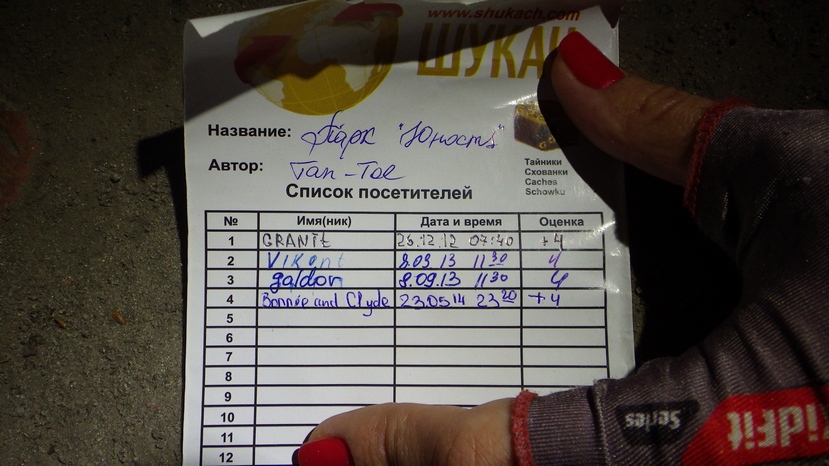 www.shukach.com
ШУКАЧ
Название: Парк "Юность"
Автор: Tan-Toe
Тайники
Схованки
Caches
Schowku
Список посетителей
№ Имя(ник) Дата и время Оценка
1 GRANIt 28.12.12 07:40 +4
2 Vikont 8.09.13 11 30 4
3 galdon 8.09.13 11 30 4
4 Bonnie and Clyde 23.05 14 23 20 +4
5
6
7
8
9
10
11
12
idFit
Series